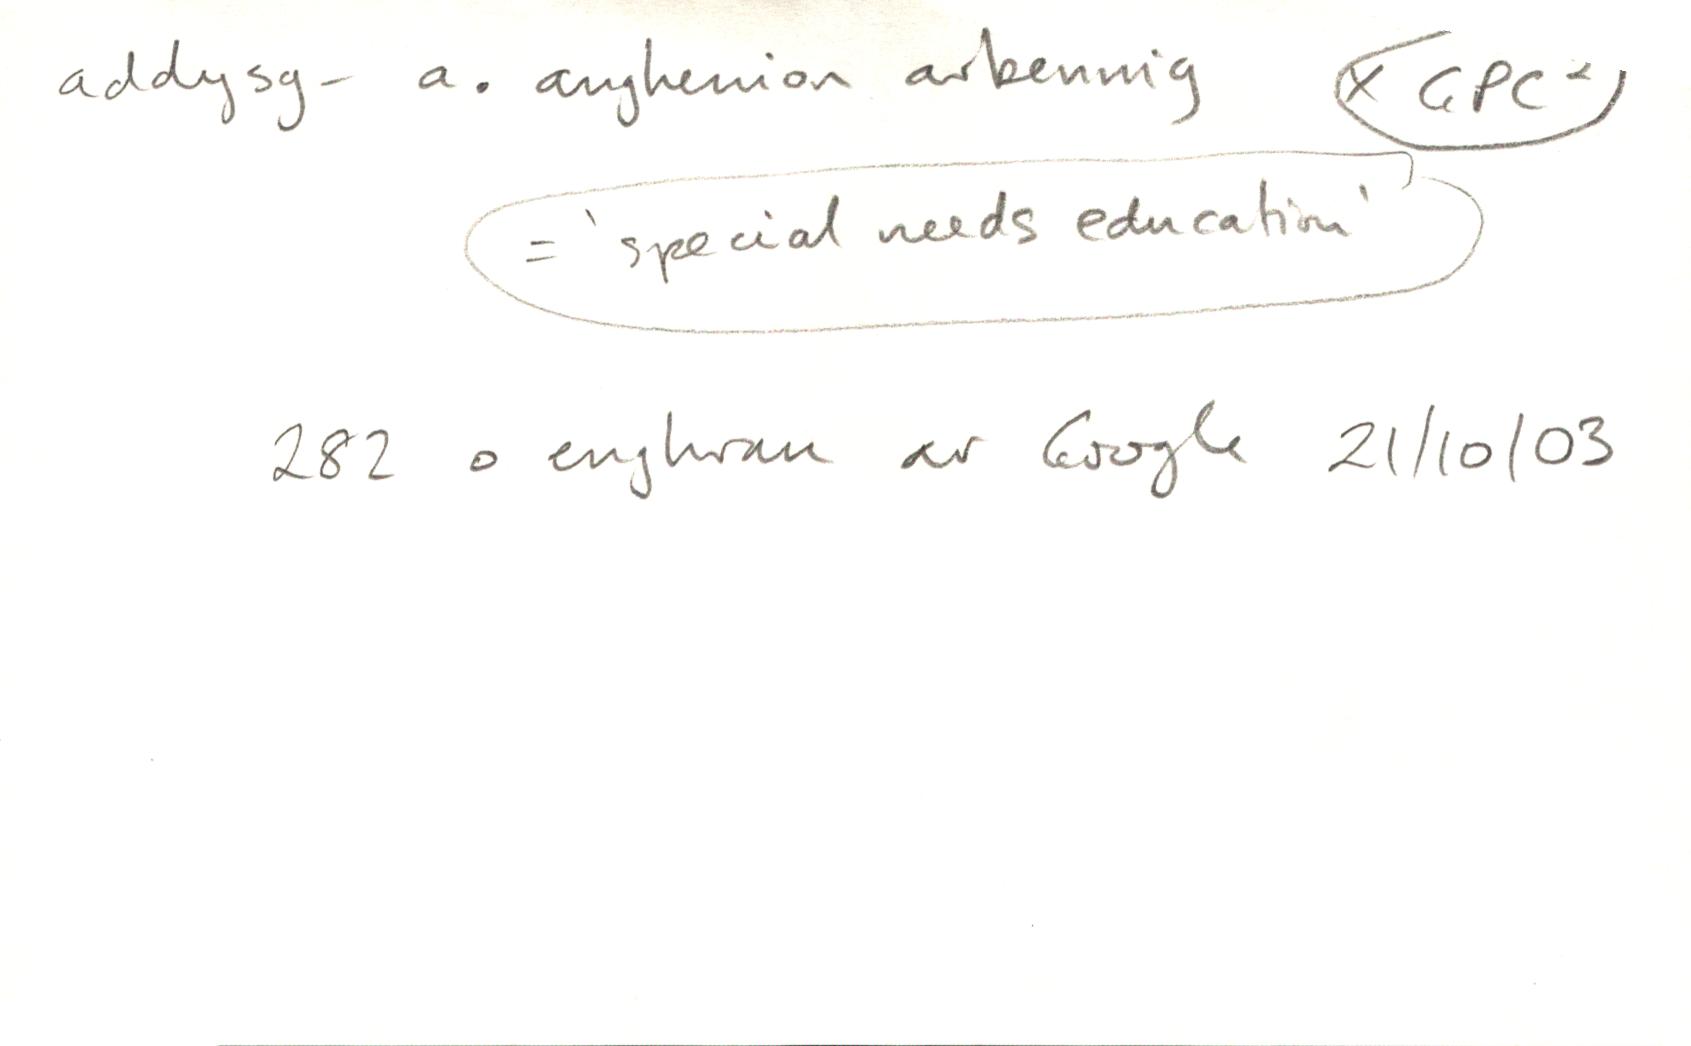 addysg - a. anghenion arbennig (x GPC²)
= 'special needs education'
282 o enghrau ar Google 21/10/03